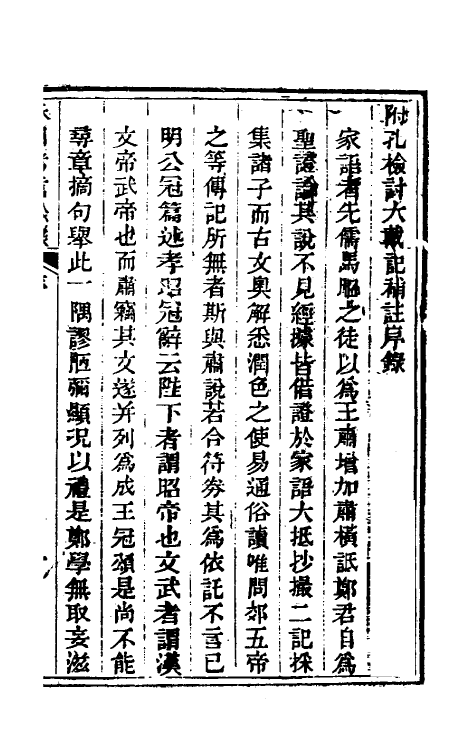 附孔檢討大戴記補註序錄
家語者先儒馬昭之徒以爲王肅增加肅橫詆鄭君自爲
聖證論其說不見經據皆借證於家語大抵抄撮二記採
集諸子而古文奧解悉潤色之使易通俗讀唯問郊五帝
之等傳記所無者斯與肅說若合符券其爲依託不言已
明公冠篇述孝昭冠辭云陛下者謂昭帝也文武者謂漢
文帝武帝也而肅竊其文遂并列爲成王冠頌是尚不能
尋章摘句舉此一隅謬陋彌顯況以禮是鄭學無取妄滋